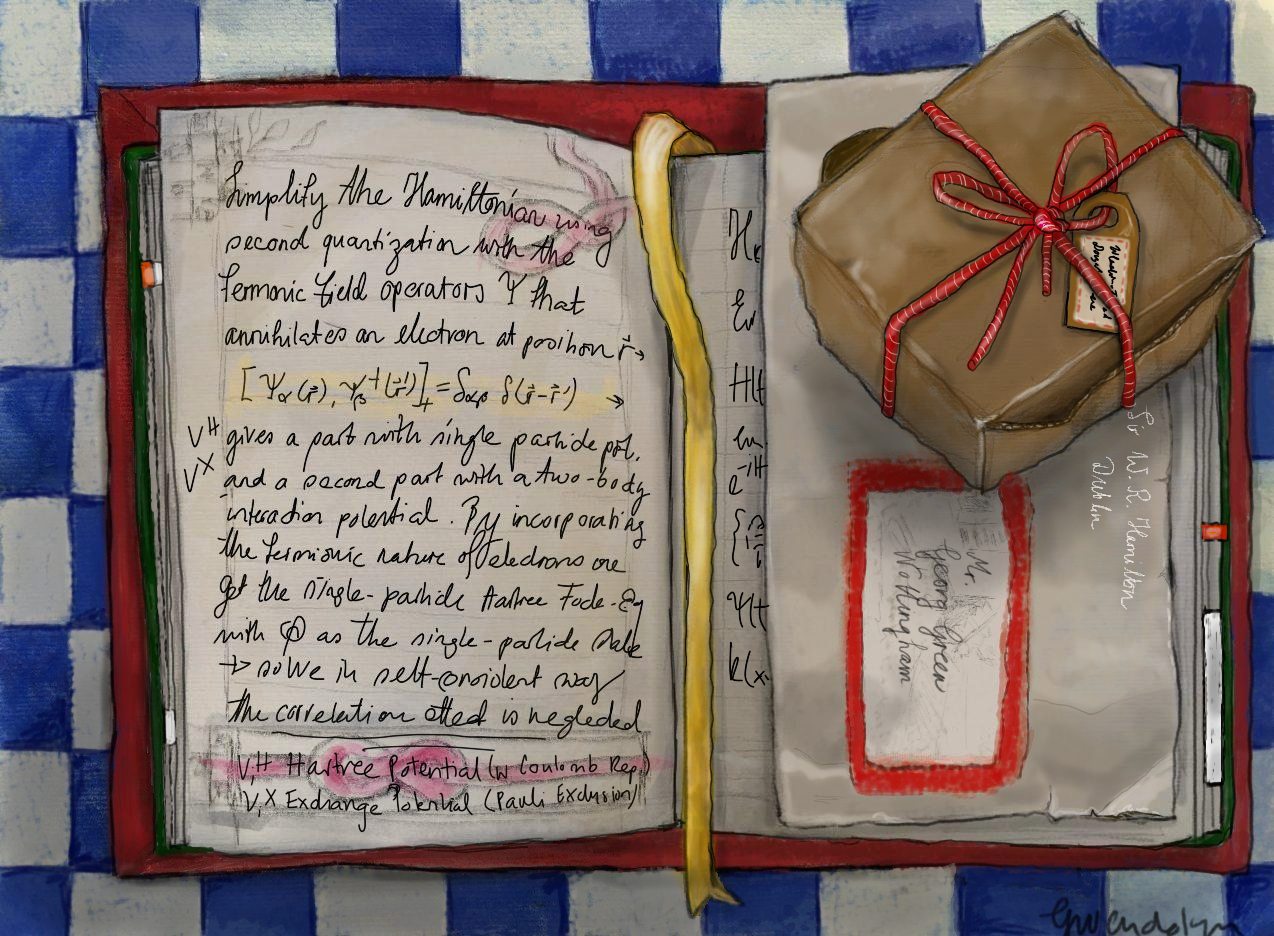 Simplify the Hamiltonian using
second quantization with the
Fermonic field operators Ψ that
annihilates an electron at position r⃗ →
[Ψα(r⃗), Ψβ†(r⃗')]₊ = δαβ δ(r⃗-r⃗') →
V^H gives a part with single particle pot.
V^X and a second part with a two-body
interaction potential. By incorporating
the fermionic nature of electrons one
get the single-particle Hartree Fock-Eq
with φ as the single-particle state
→ solve in self-consistent way
the correlation effect is neglected
V,H Hartree Potential (w Coulomb Rep)
V,X Exchange Potential (Pauli Exclusion)
H
Ev
H(t
em
e^-iH
Ψ(t
k(x,
Sir W. R. Hamilton
Dublin
Mr.
Georg Green
Nottingham
Gwendolyn